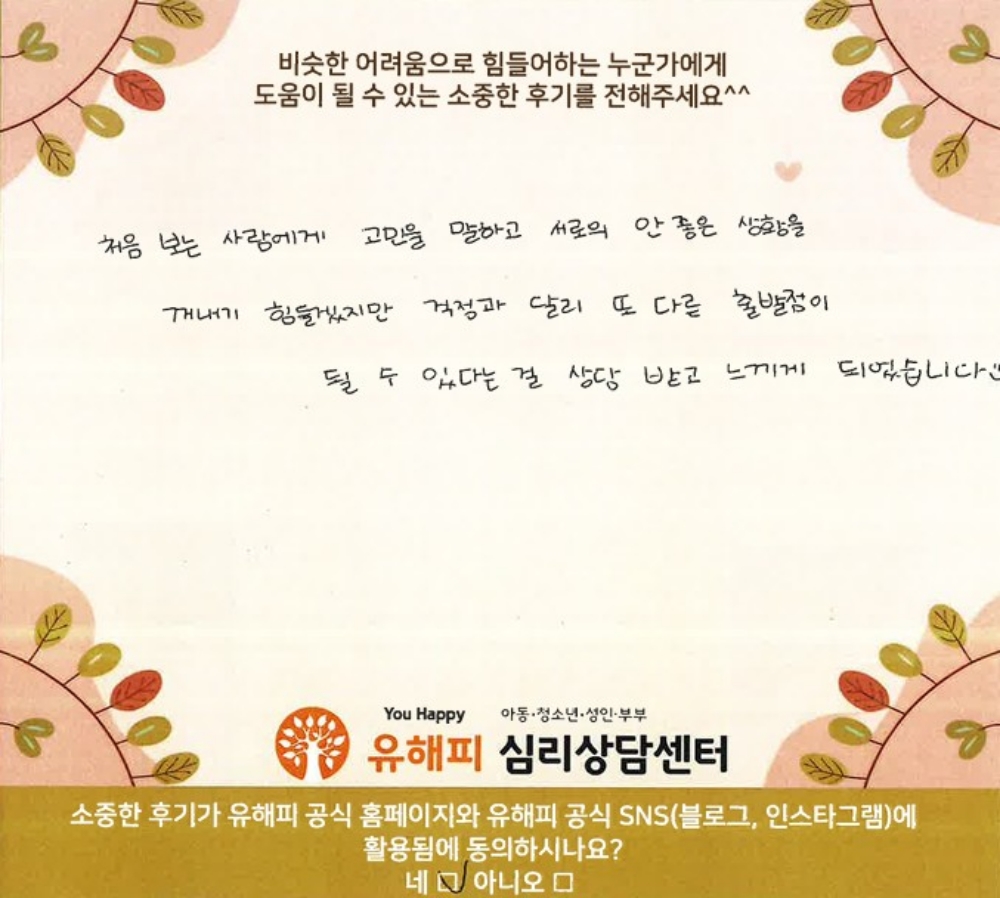 비슷한 어려움으로 힘들어하는 누군가에게
도움이 될 수 있는 소중한 후기를 전해주세요^^
처음 보는 사람에게 고민을 말하고 서로의 안 좋은 상황을
꺼내기 힘들겠지만 걱정과 달리 또 다른 출발점이
될 수 있다는 걸 상담 받고 느끼게 되었습니다
You Happy 아동·청소년·성인·부부
유해피 심리상담센터
소중한 후기가 유해피 공식 홈페이지와 유해피 공식 SNS(블로그, 인스타그램)에
활용됨에 동의하시나요?
네 ☑ 아니오 □